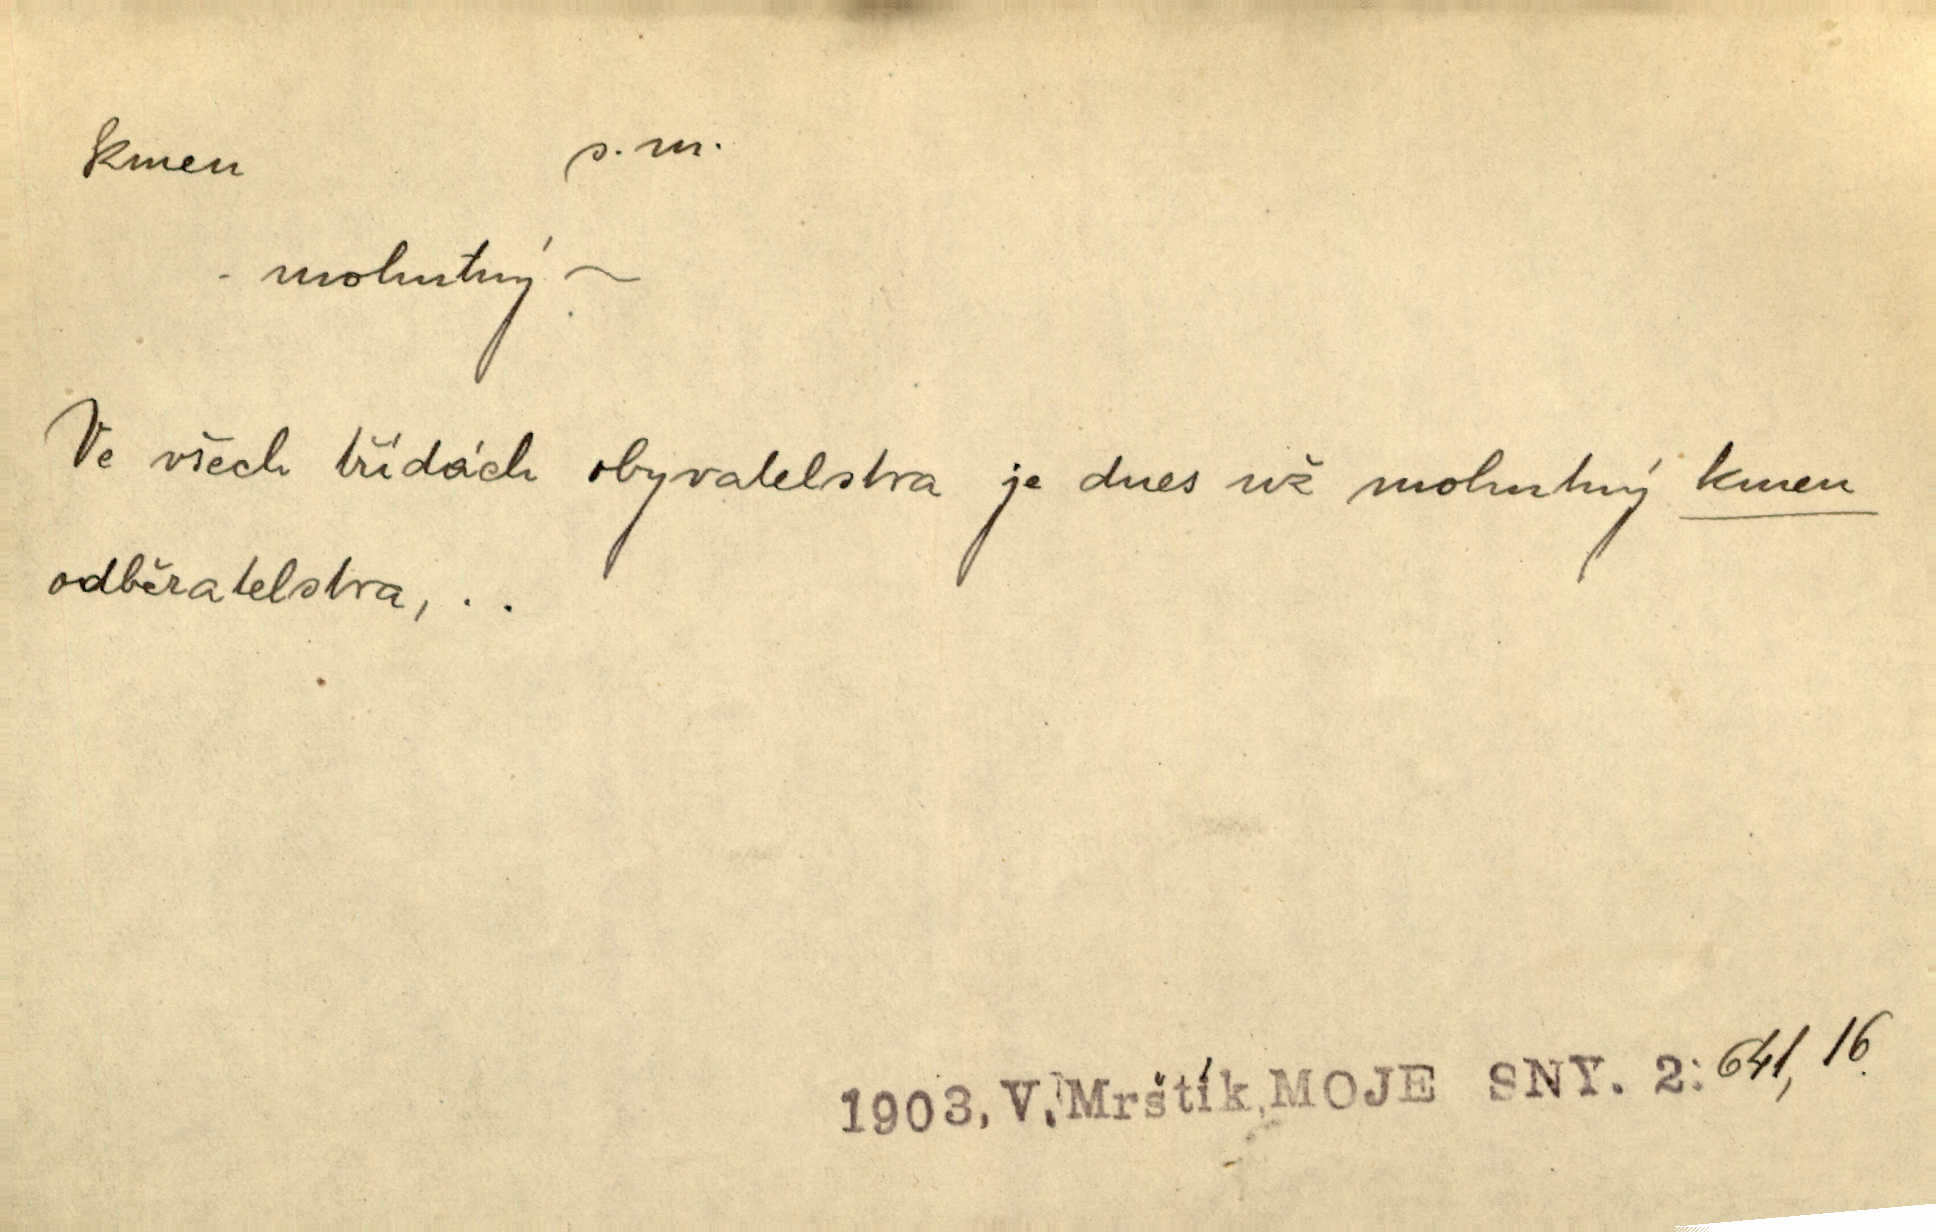 kmen s. m.
- mohutný ~
Ve všech třídách obyvatelstva je dnes už mohutný kmen
odběratelstva, . .
1903, V. Mrštík, MOJE SNY. 2: 641, 16.